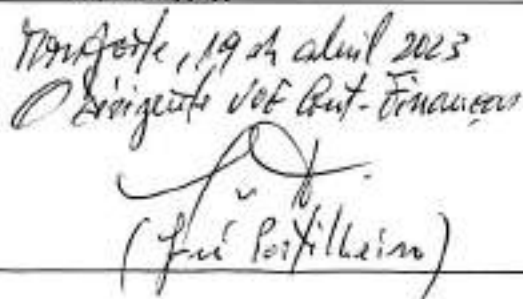 Monforte, 19 de abril 2023
O Dirigente UOF Cont-Finanças
(José Portilheiro)